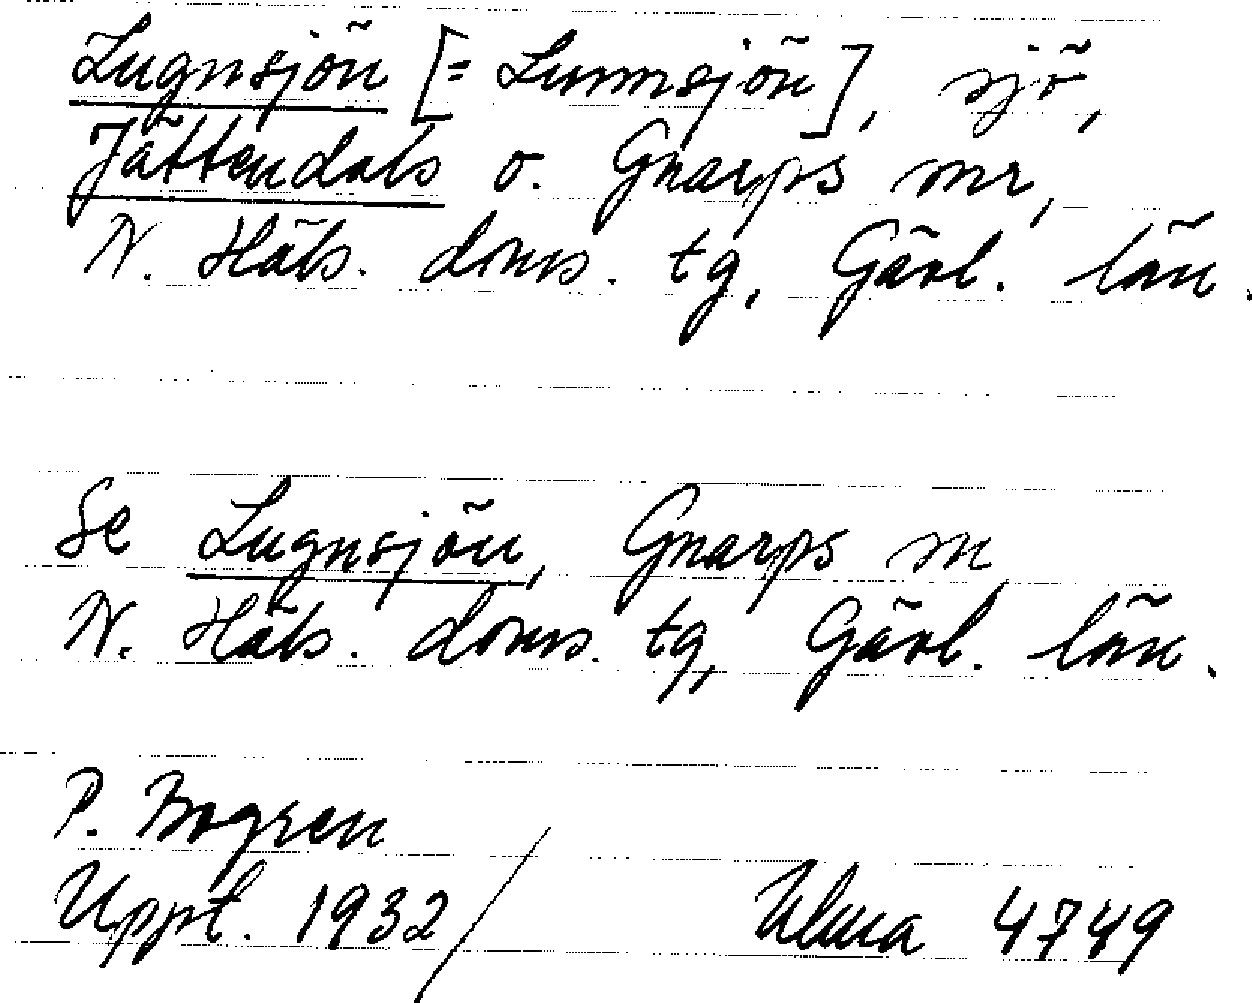 Lugnsjön [= Lunnsjön], sjö,
Jättendals o. Gnarps snr,
N. Häls. doms. tg, Gävl. län.
Se Lugnsjön, Gnarps sn
N. Häls. doms. tg, Gävl. län.
P. Bogren
Uppt. 1932/ Ulma 4749